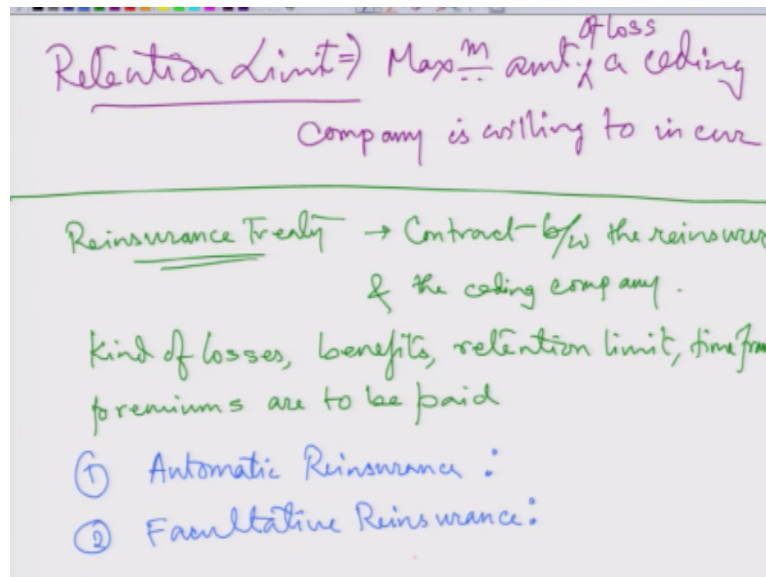 Retention Limit ⇒ Maxm amt. of loss a ceding
Company is willing to incur
Reinsurance Treaty → Contract b/w the reinsurer
& the ceding company.
Kind of losses, benefits, retention limit, time fram
premiums are to be paid
① Automatic Reinsurance :
② Facultative Reinsurance :